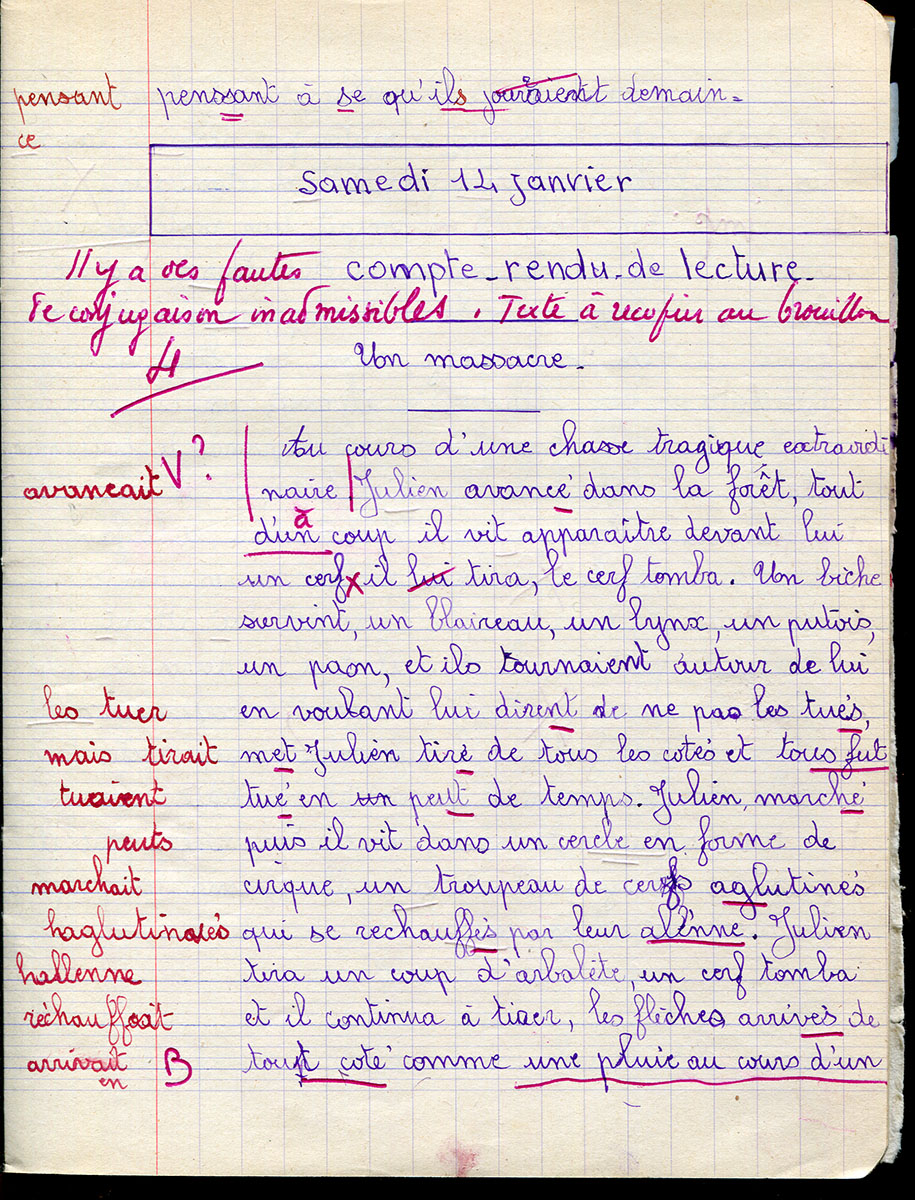 pensant penssant à se qu'ils joueraient demain.
ce
Samedi 14 janvier
Il y a des fautes compte-rendu de lecture.
de conjugaison inadmissibles. Texte à recopier au brouillon
4 Un massacre.
V ? Au cours d'une chasse tragique extraordi
avancait naire Julien avancé dans la forêt, tout
à
d'un coup il vit apparaître devant lui
un cerf x il lui tira, le cerf tomba. Un biche
survint, un blaireau, un lynx, un putois,
un paon, et ils tournaient autour de lui
les tuer en voulant lui dirent de ne pas les tués,
mais tirait met Julien tiré de tous les cotés et tous fut
tuaient tué en un peut de temps. Julien, marché
peuts puis il vit dans un cercle en forme de
marchait cirque, un troupeau de cerfs aglutinés
haglutinées qui se rechauffés par leur alènne. Julien
hallenne tira un coup d'arbalète, un cerf tomba
réchauffait et il continua à tirer, les flèches arrivés de
arrivait B tout coté comme une pluie au cours d'un
en